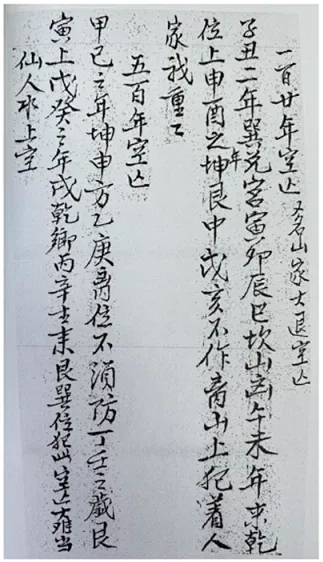 一百廿年空亡又名山家大退空亡
子丑二年巽兑宮寅卯辰巳坎山凶午未年來乾
位上申酉之年坤艮中戌亥不作离山上犯着人
家我重
五百年空亡
甲己之年坤申方乙庚离位不須防丁壬之歲艮
寅上戊癸之年戌乾鄉丙辛未艮巽位犯此空亡难當
仙人水上空